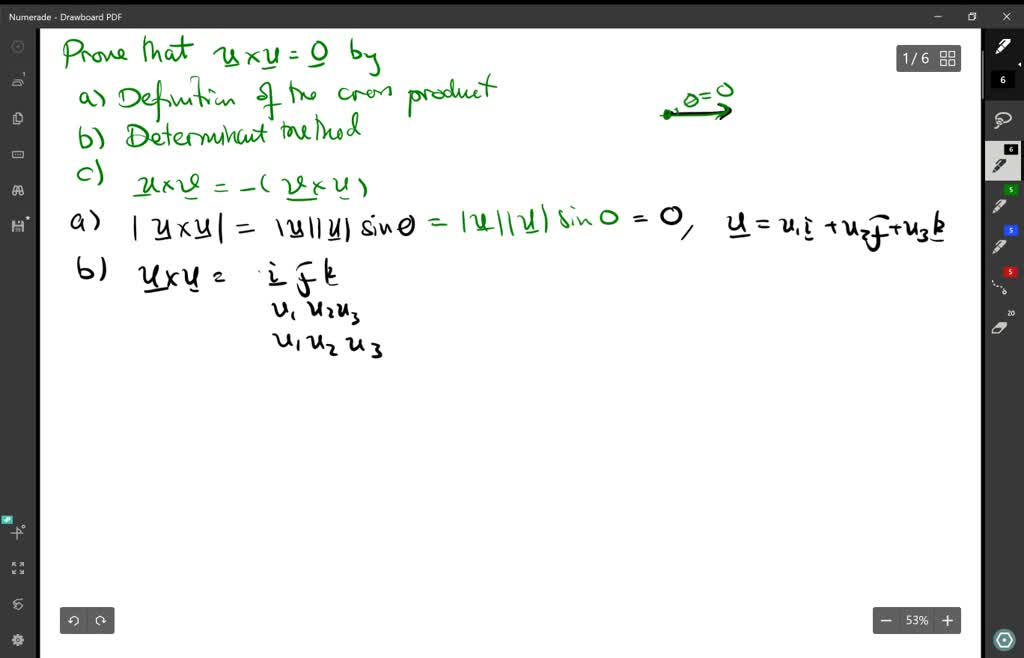 Numerade - Drawboard PDF
1 / 6
Prove that u × u = 0 by
a) Definition of the cross product
θ = 0
b) Determinant method
c) u × v = -( v × u )
a) | u × u | = |u||u| sin θ = |u||u| sin 0 = 0, u = u₁i + u₂j + u₃k
b) u × u = i j k
u₁ u₂ u₃
u₁ u₂ u₃
6
6
5
5
5
20
53%